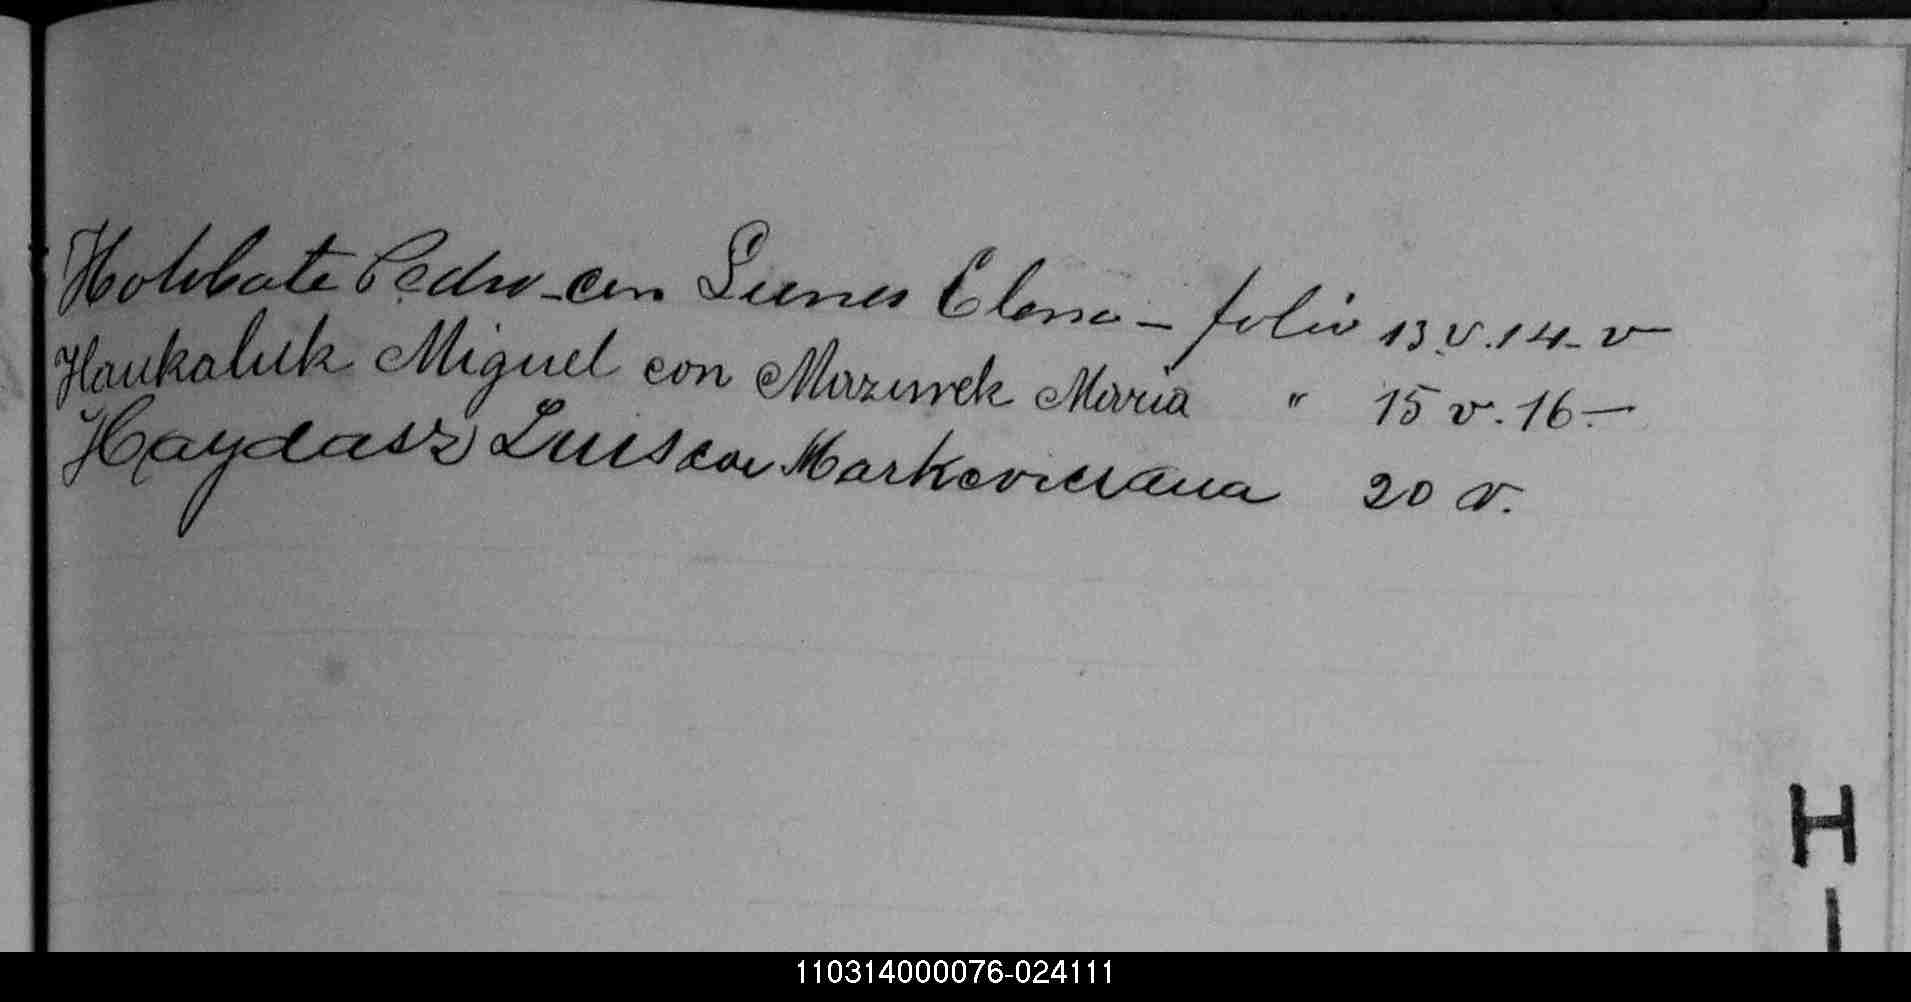 Pedro - con Elena - folio 13.v.14- v
Haukaluk Miguel con Mazurek Maria " 15 v. 16.-
Haydasz Luis con 20 v.
H
I
110314000076-024111